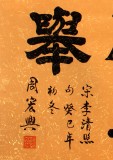 舉
宋李清照
句癸巳年
初冬
周宏興